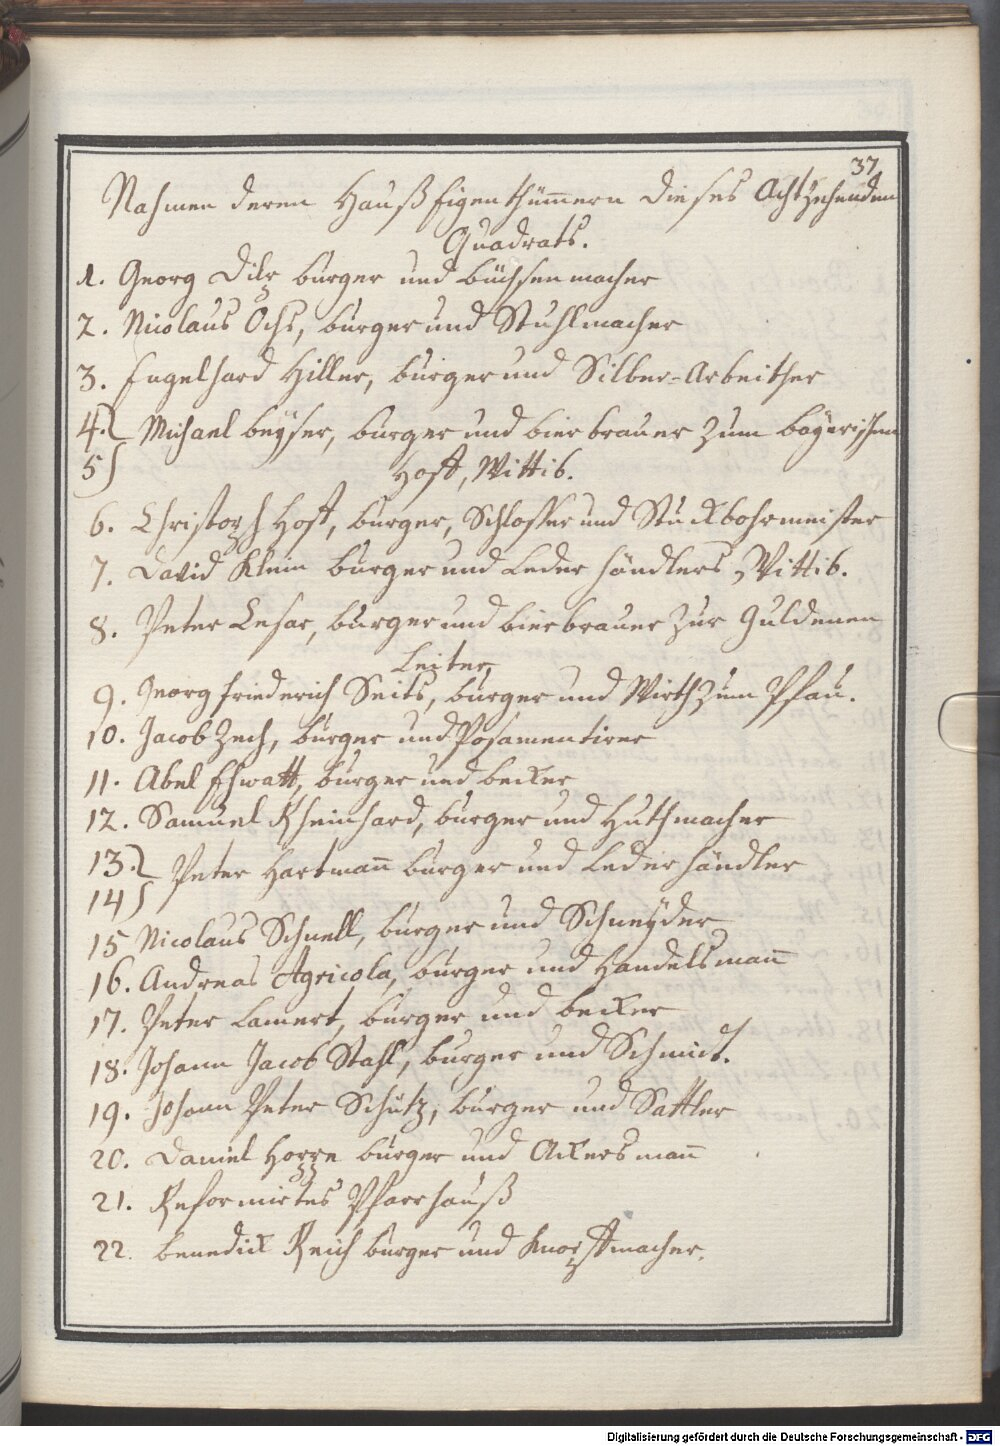 37
Nahmen deren Hauß Eigenthümmern dieses Achtzehenden
Quadrats.
1. Georg Dilg burger und büchsenmacher
2. Nicolaus Ochs, burger und Stuhlmacher
3. Engelhard Hiller, burger und Silber-Arbeither
4. Michael beÿser, burger und bierbrauer zum baÿerischen
5 Hoff, Wittib.
6. Christoph Hoff, burger, Schlosser und Stuckbohrmeister
7. David Klein burger und Leder händlers Wittib.
8. Peter Cesar, burger und bierbrauer zur Guldenen
Leiter
9. Georg friederich Seits, burger und Wirth zum Pfau.
10. Jacob Zech, burger und Posamentirer
11. Abel Ehwatt, burger und becker
12. Samuel Rheinhard, burger und Huthmacher
13. Peter Hartmañ burger und Lederhändler
14
15 Nicolaus Schnell, burger und Schneÿder
16. Andreas Agricola, burger und Handelsmañ
17. Peter Lamert, burger und becker
18. Johann Jacob Stahl, burger und Schmidt.
19. Johann Peter Schütz, burger und Sattler
20. Daniel Hoppe burger und Ackersmañ
21. Reformirtes Pfarrhauß
22. benedick Reich burger und Knopffmacher.
Digitalisierung gefördert durch die Deutsche Forschungsgemeinschaft - DFG